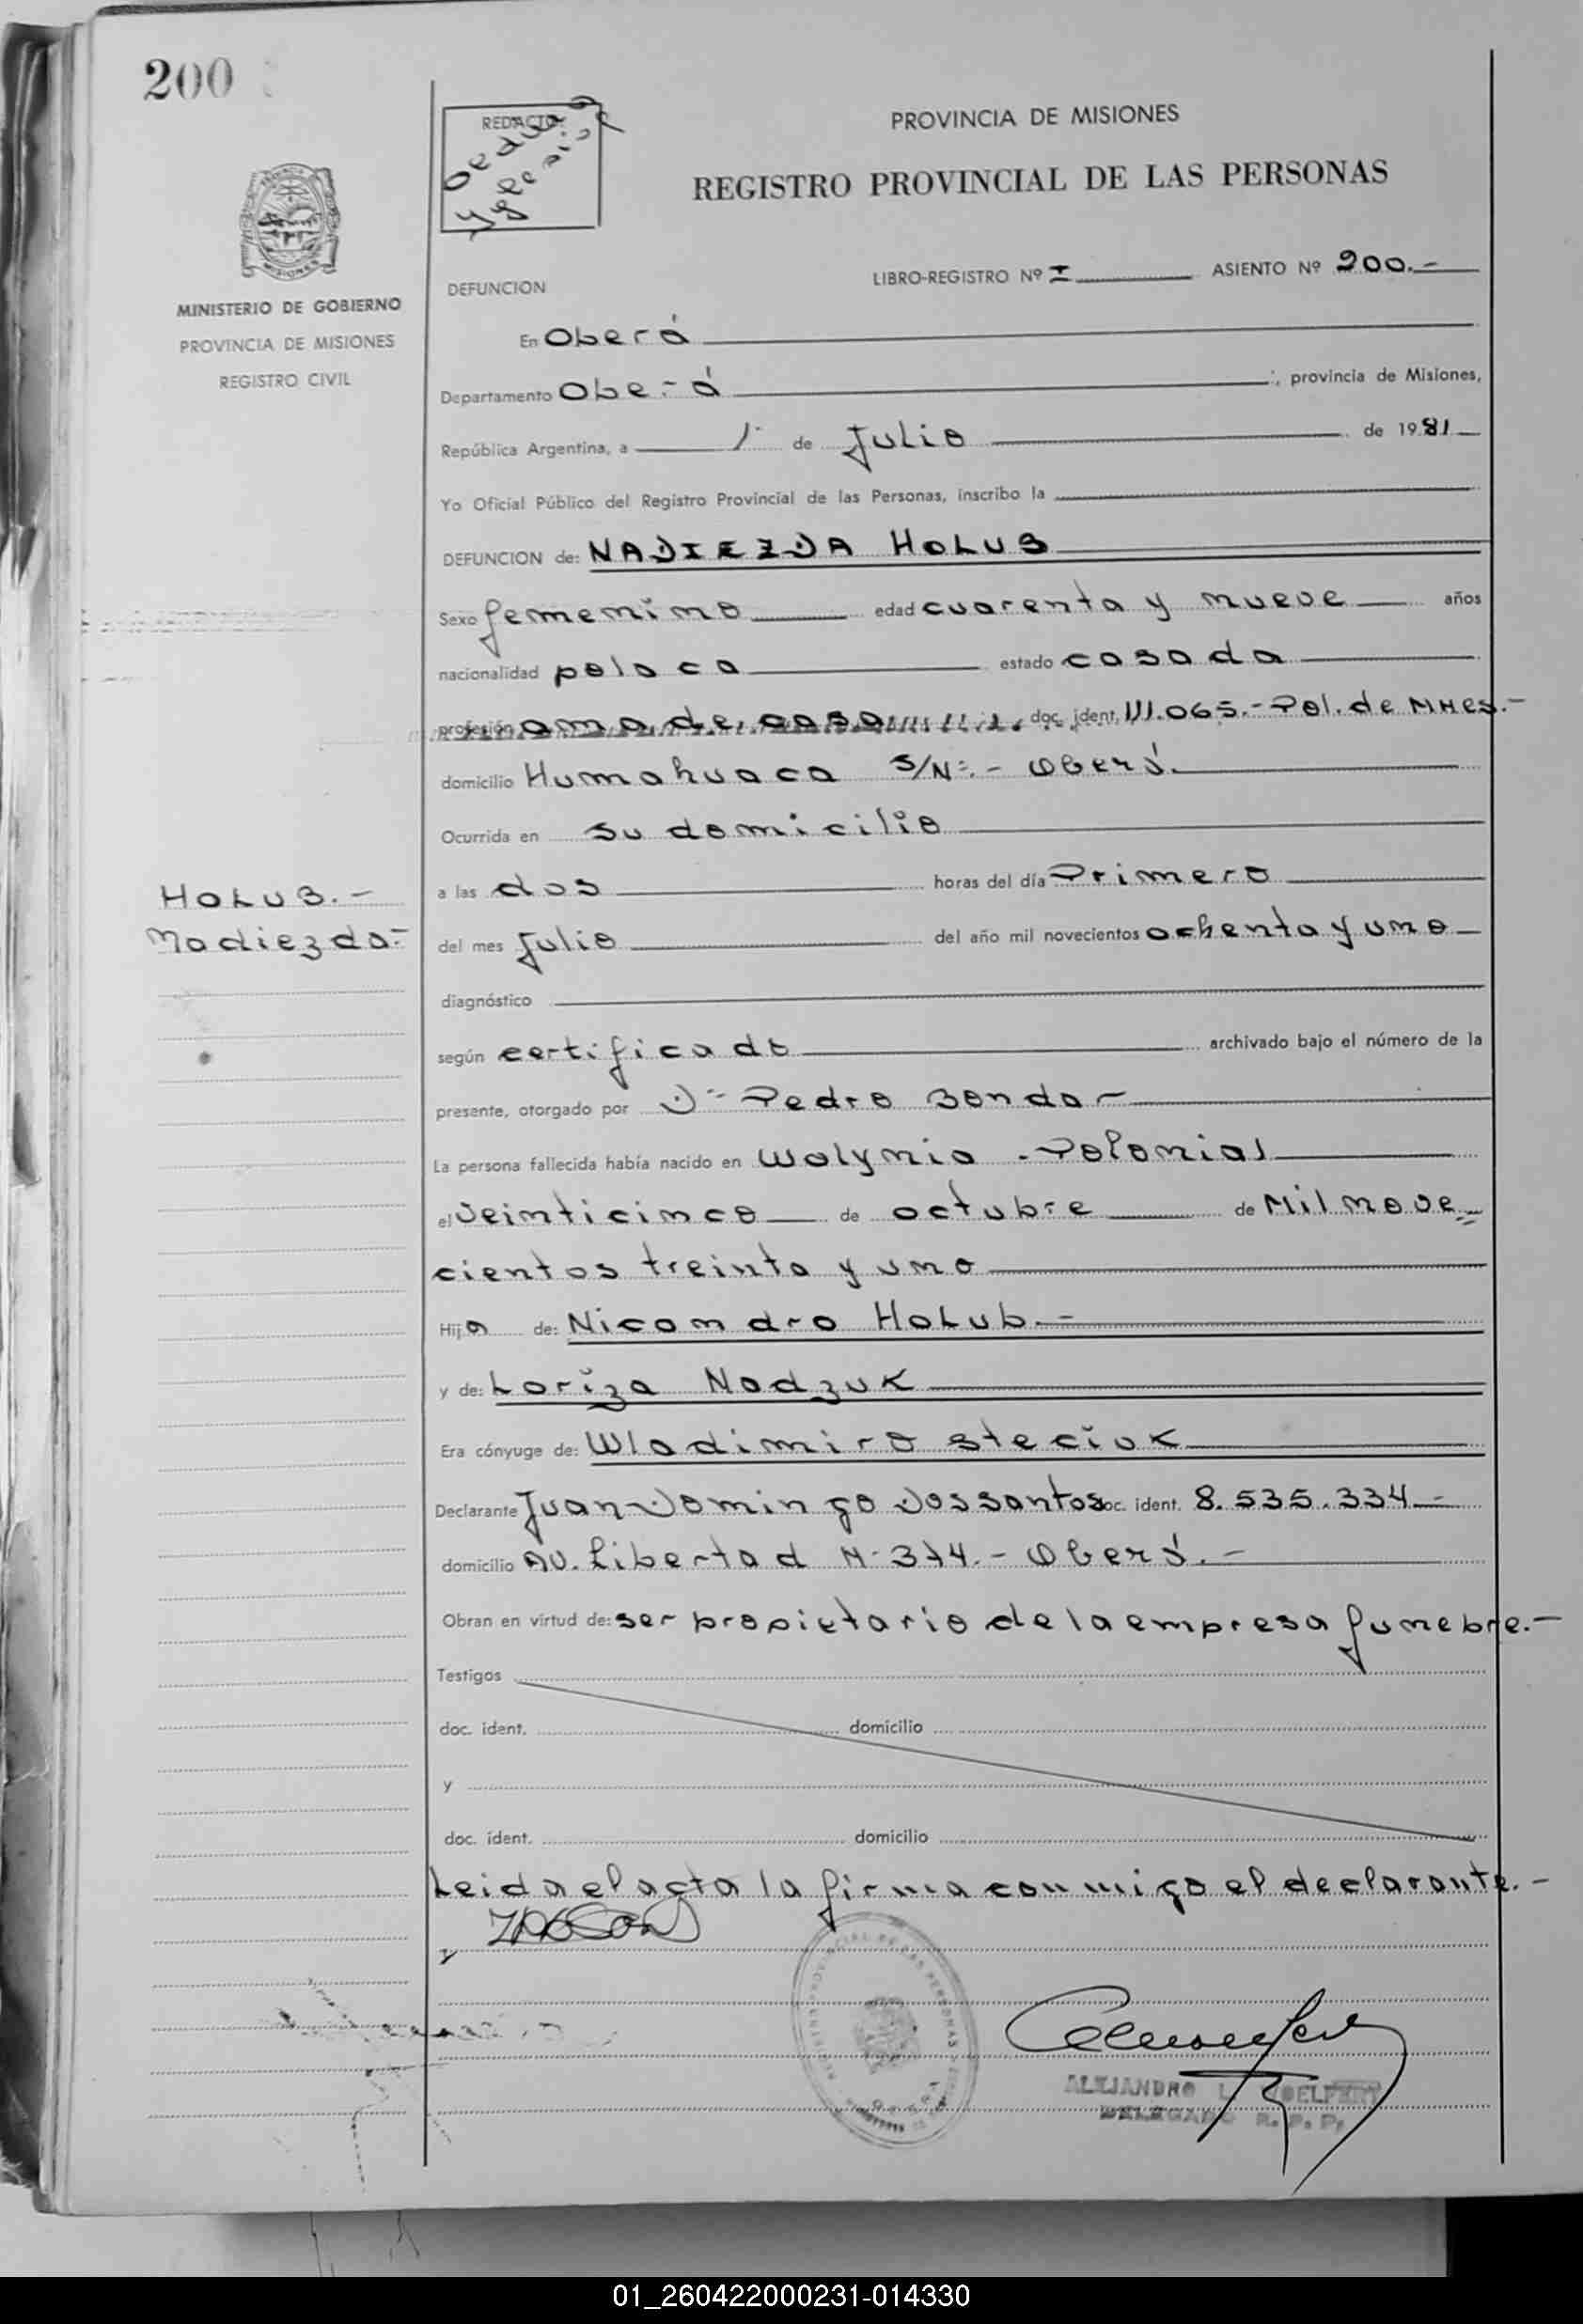 200
REDACTO:
PROVINCIA DE MISIONES
REGISTRO PROVINCIAL DE LAS PERSONAS
MISIONES
MINISTERIO DE GOBIERNO
PROVINCIA DE MISIONES
REGISTRO CIVIL
DEFUNCION
LIBRO-REGISTRO Nº I ASIENTO Nº 200.-
En Oberá
Departamento Oberá, provincia de Misiones,
República Argentina, a 1º de Julio de 1981
Yo Oficial Público del Registro Provincial de las Personas, inscribo la
DEFUNCION de: NADIEZDA HOLUB
Sexo femenino edad cuarenta y nueve años
nacionalidad polaca estado casada
profesión ama de casa doc. ident. 111.065.- Pol. de MNes.-
domicilio Humahuaca S/Nº.- Oberá.
Ocurrida en su domicilio
HOLUB.-
Nadiezda.-
a las dos horas del día Primero
del mes Julio del año mil novecientos ochenta y uno
diagnóstico
según certificado archivado bajo el número de la
presente, otorgado por Dr Pedro Bondar
La persona fallecida había nacido en Wolynia - Polonia
el veinticinco de octubre de Mil nove=
cientos treinta y uno
Hija de: Nicandro HoLub.-
y de: Lariza Nadzuk
Era cónyuge de: Wladimiro steciuk
Declarante Juan Domingo Dossantos doc. ident. 8.535.334-
domicilio AV. Libertad Nº 374.- Oberá.-
Obran en virtud de: ser propietario de la empresa funebre.-
Testigos
doc. ident. domicilio
y
doc. ident. domicilio
Leida el acta la firma conmigo el declarante.-
REGISTRO PROVINCIAL DE LAS PERSONAS
OBERA
ALEJANDRO L.
DELEGADO R. P. P.
01_260422000231-014330